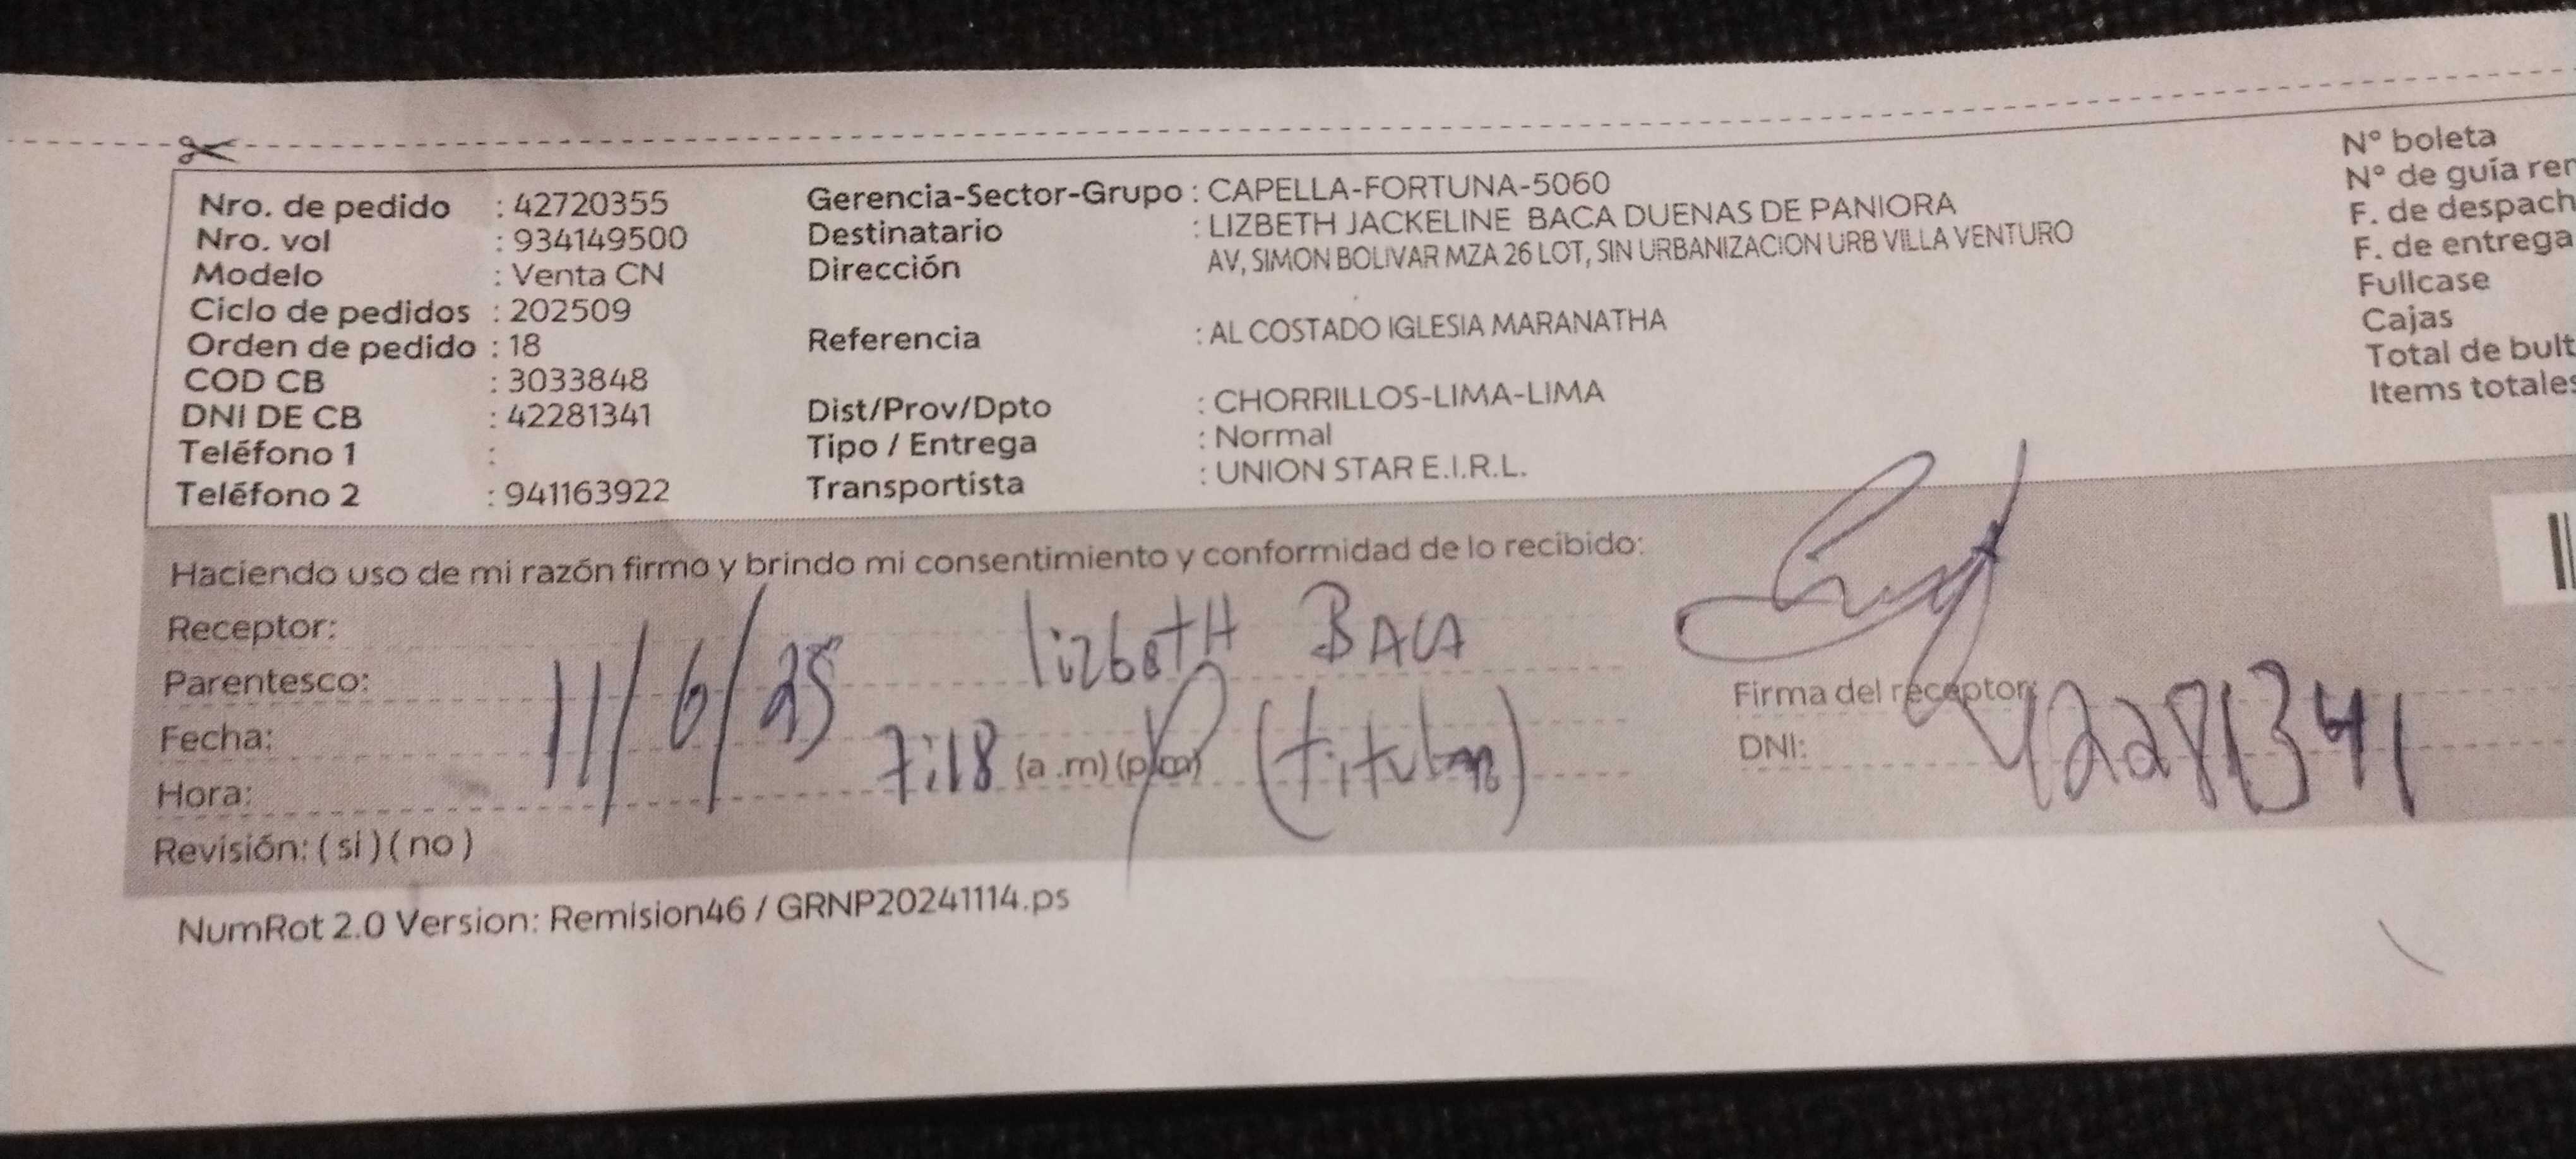 Nro. de pedido : 42720355
Nro. vol : 934149500
Modelo : Venta CN
Ciclo de pedidos : 202509
Orden de pedido : 18
COD CB : 3033848
DNI DE CB : 42281341
Teléfono 1 :
Teléfono 2 : 941163922
Gerencia-Sector-Grupo : CAPELLA-FORTUNA-5060
Destinatario : LIZBETH JACKELINE BACA DUENAS DE PANIORA
Dirección AV, SIMON BOLIVAR MZA 26 LOT, SIN URBANIZACION URB VILLA VENTURO
Referencia : AL COSTADO IGLESIA MARANATHA
Dist/Prov/Dpto : CHORRILLOS-LIMA-LIMA
Tipo / Entrega : Normal
Transportista : UNION STAR E.I.R.L.
N° boleta
N° de guía rem
F. de despach
F. de entrega
Fullcase
Cajas
Total de bult
Items totales
Haciendo uso de mi razón firmo y brindo mi consentimiento y conformidad de lo recibido:
Receptor: lizbetH BACA
Parentesco:
Fecha: 11/6/25
Hora: 7:18 (a .m) (p.m) (titular)
Revisión: ( si ) ( no )
Firma del receptor:
DNI: 42281341
NumRot 2.0 Version: Remision46 / GRNP20241114.ps